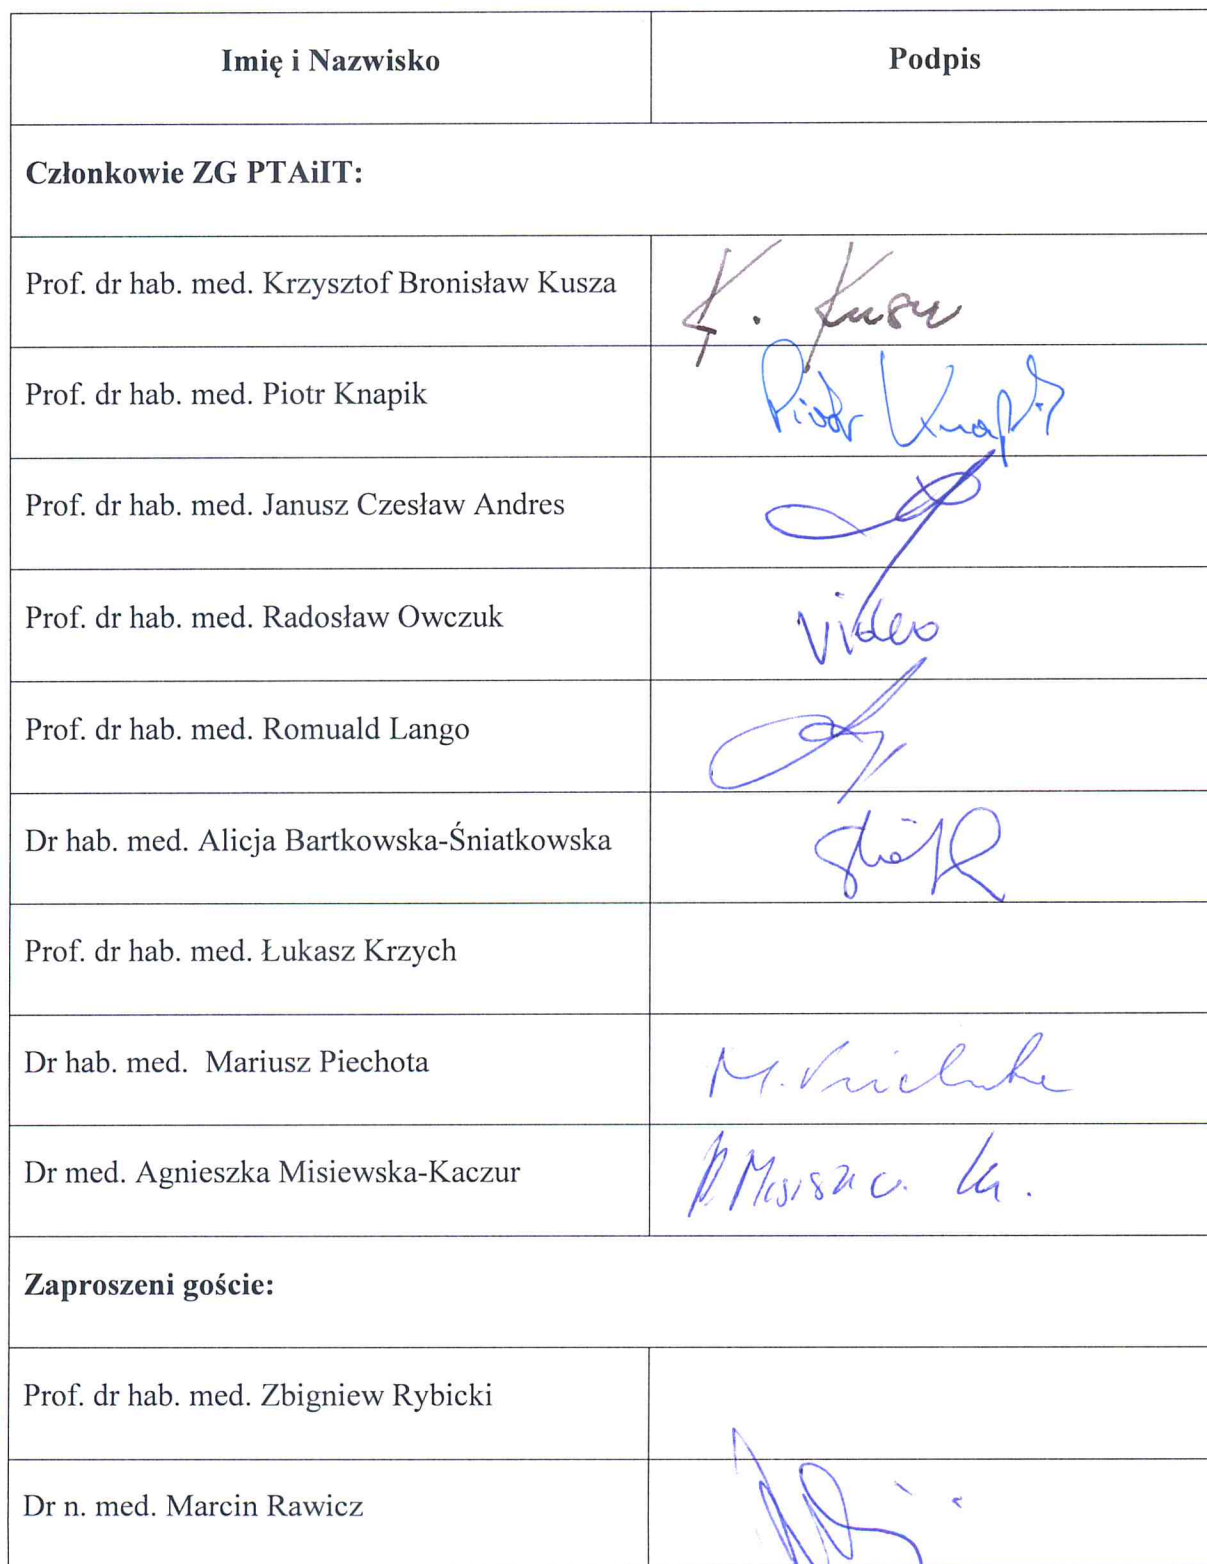 Imię i Nazwisko Podpis
Członkowie ZG PTAiIT:
Prof. dr hab. med. Krzysztof Bronisław Kusza K. Kusza
Prof. dr hab. med. Piotr Knapik Piotr Knapik
Prof. dr hab. med. Janusz Czesław Andres
Prof. dr hab. med. Radosław Owczuk video
Prof. dr hab. med. Romuald Lango
Dr hab. med. Alicja Bartkowska-Śniatkowska
Prof. dr hab. med. Łukasz Krzych
Dr hab. med. Mariusz Piechota M.
Dr med. Agnieszka Misiewska-Kaczur
Zaproszeni goście:
Prof. dr hab. med. Zbigniew Rybicki
Dr n. med. Marcin Rawicz